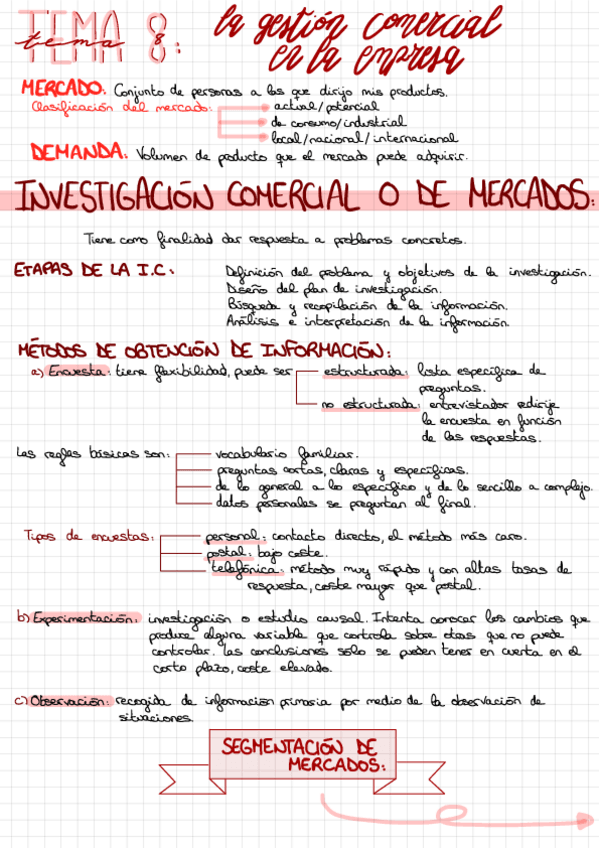 TEMA 8:
tema 8
la gestión comercial
en la empresa
MERCADO: Conjunto de personas a las que dirijo mis productos.
Clasificación del mercado:
actual/potencial
de consumo/industrial
local/nacional/internacional
DEMANDA: Volumen de producto que el mercado puede adquirir.
INVESTIGACIÓN COMERCIAL O DE MERCADOS:
Tiene como finalidad dar respuesta a problemas concretos.
ETAPAS DE LA I.C: Definición del problema y objetivos de la investigación.
Diseño del plan de investigación.
Búsqueda y recopilación de la información.
Análisis e interpretación de la información.
MÉTODOS DE OBTENCIÓN DE INFORMACIÓN:
a) Encuesta: tiene flexibilidad, puede ser
estructurada: lista específica de
preguntas.
no estructurada: entrevistador redirije
la encuesta en función
de las respuestas.
Las reglas básicas son:
vocabulario familiar.
preguntas cortas, claras y específicas.
de lo general a lo específico y de lo sencillo a complejo.
datos personales se preguntan al final.
Tipos de encuestas:
personal: contacto directo, el método más caro.
postal: bajo coste.
telefónica: método muy rápido y con altas tasas de
respuesta, coste mayor que postal.
b) Experimentación: investigación o estudio causal. Intenta conocer los cambios que
produce alguna variable que controla sobre otras que no puede
controlar. Las conclusiones sólo se pueden tener en cuenta en el
corto plazo, coste elevado.
c) Observación: recogida de información primaria por medio de la observación de
situaciones.
SEGMENTACIÓN DE
MERCADOS: